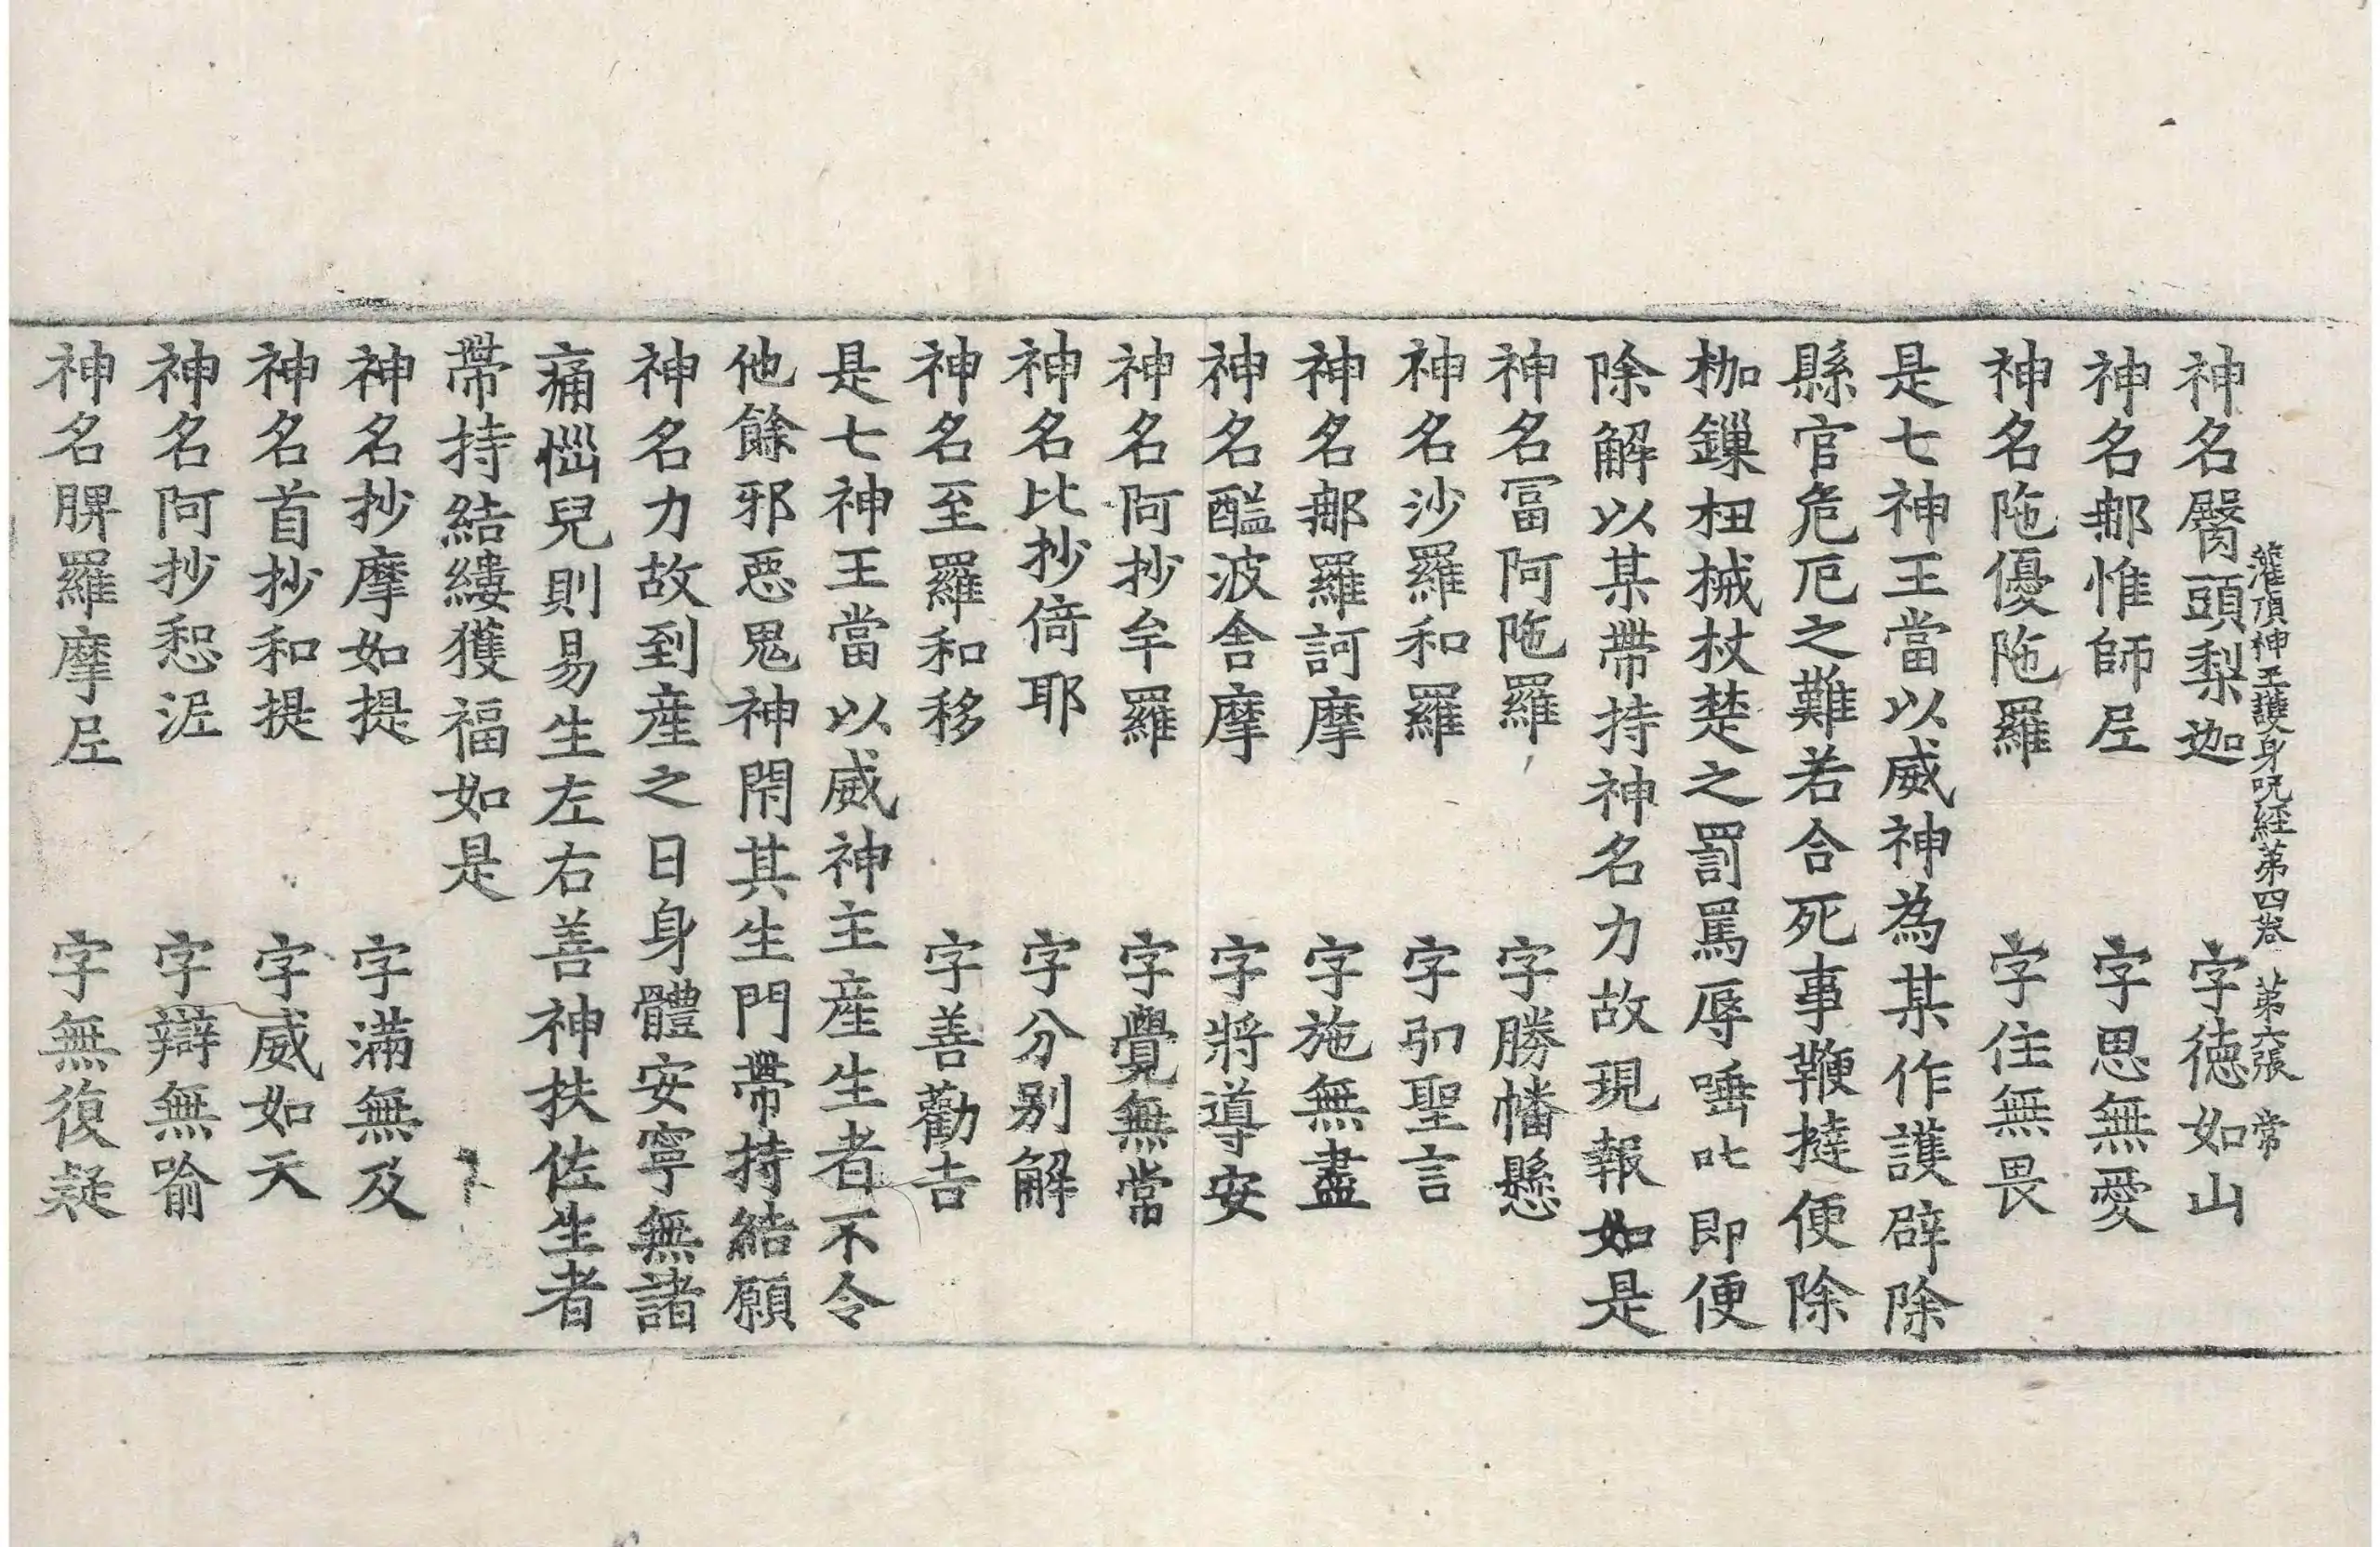 灌頂神王護身呪経苐四卷 苐六張 常
神名臋頭梨迦 字德如山
神名𨚗惟師𡰱 字思無愛
神名陁優陁羅 字住無畏
是七神王當以威神為某作護辟除
縣官危厄之難若合死事鞭撻便除
枷鏁杻械杖楚之罰罵辱唾叱即便
除解以某帶持神名力故現報如是
神名冨阿陁羅 字勝幡懸
神名沙羅和羅 字引聖言
神名𨚗羅訶摩 字施無盡
神名醯波舍摩 字將導安
神名阿抄牟羅 字覺無常
神名比抄倚耶 字分别解
神名至羅和移 字善勸吉
是七神王當以威神主産生者不令
他餘邪惡鬼神閇其生門帶持結願
神名力故到産之日身體安寧無諸
痛惱兒則易生左右善神扶佐生者
帶持結縷獲福如是
神名抄摩如提 字滿無及
神名首抄和提 字威如天
神名阿抄惒泥 字辯無喻
神名脾羅摩𡰱 字無復疑